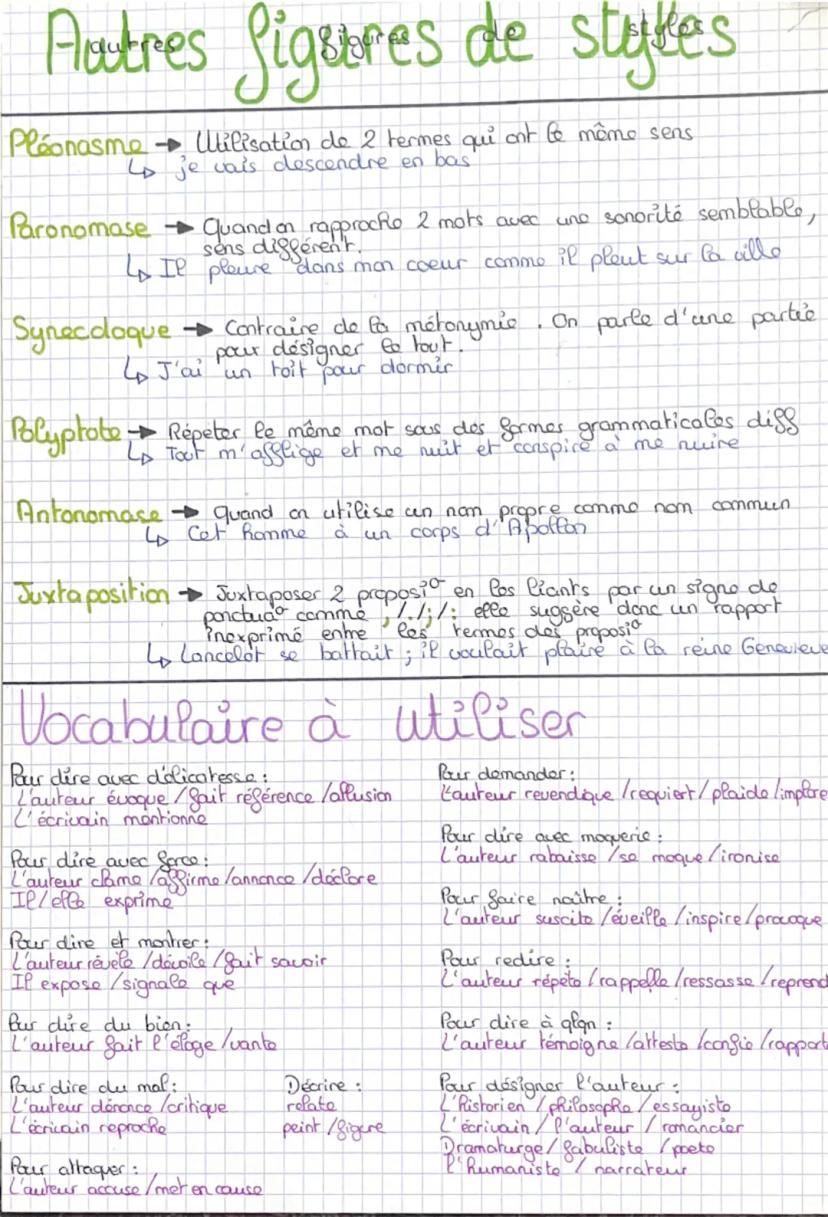 Autres figures de styles
Pléonasme → Utilisation de 2 termes qui ont le même sens
↳ je vais descendre en bas
Paronomase → Quand on rapproche 2 mots avec une sonorité semblable,
sens différent.
↳ Il pleure dans mon coeur comme il pleut sur la ville
Synecdoque → Contraire de la métonymie. On parle d'une partie
pour désigner le tout.
↳ J'ai un toît pour dormir
Polyptote → Répeter le même mot sous des formes grammaticales diff
↳ Tout m'afflige et me nuit et conspire à me nuire
Antonomase → quand on utilise un nom propre comme nom commun
↳ Cet homme à un corps d'Apollon
Juxtaposition → Juxtaposer 2 proposi° en les liants par un signe de
ponctua° comme , /. /; /: elle suggère donc un rapport
inexprimé entre les termes des proposi°
↳ Lancelot se battait ; il voulait plaire à la reine Genevieve
Vocabulaire à utiliser
Pour dire avec délicatesse :
L'auteur évoque / fait référence / allusion
L'écrivain mentionne
Pour dire avec force :
L'auteur clame / affirme / annonce / déclare
Il / elle exprime
Pour dire et montrer :
L'auteur révèle / dévoile / fait savoir
Il expose / signale que
Pour dire du bien :
L'auteur fait l'éloge / vante
Pour dire du mal :
L'auteur dénonce / critique
L'écrivain reproche
Décrire :
relate
peint / figure
Pour attaquer :
L'auteur accuse / met en cause
Pour demander :
L'auteur revendique / requiert / plaide / implore
Pour dire avec moquerie :
L'auteur rabaisse / se moque / ironise
Pour faire naître :
L'auteur suscite / éveille / inspire / provoque
Pour redire :
L'auteur répète / rappelle / ressasse / reprend
Pour dire à qlqn :
L'auteur témoigne / atteste / confie / rapport
Pour désigner l'auteur :
L'historien / philosophe / essayiste
L'écrivain / l'auteur / romancier
Dramaturge / fabuliste / poete
l'humaniste / narrateur